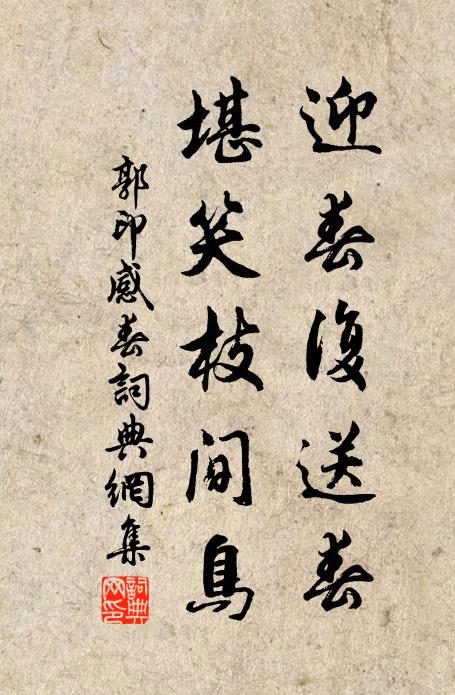 迎春復送春
堪笑枝間鳥
郭印感春詞典網集
詞典網印